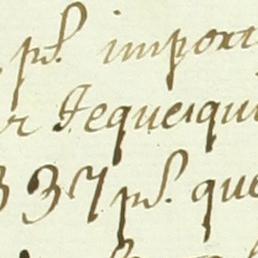 ps. import
r Jequeiqui
337 ps. que